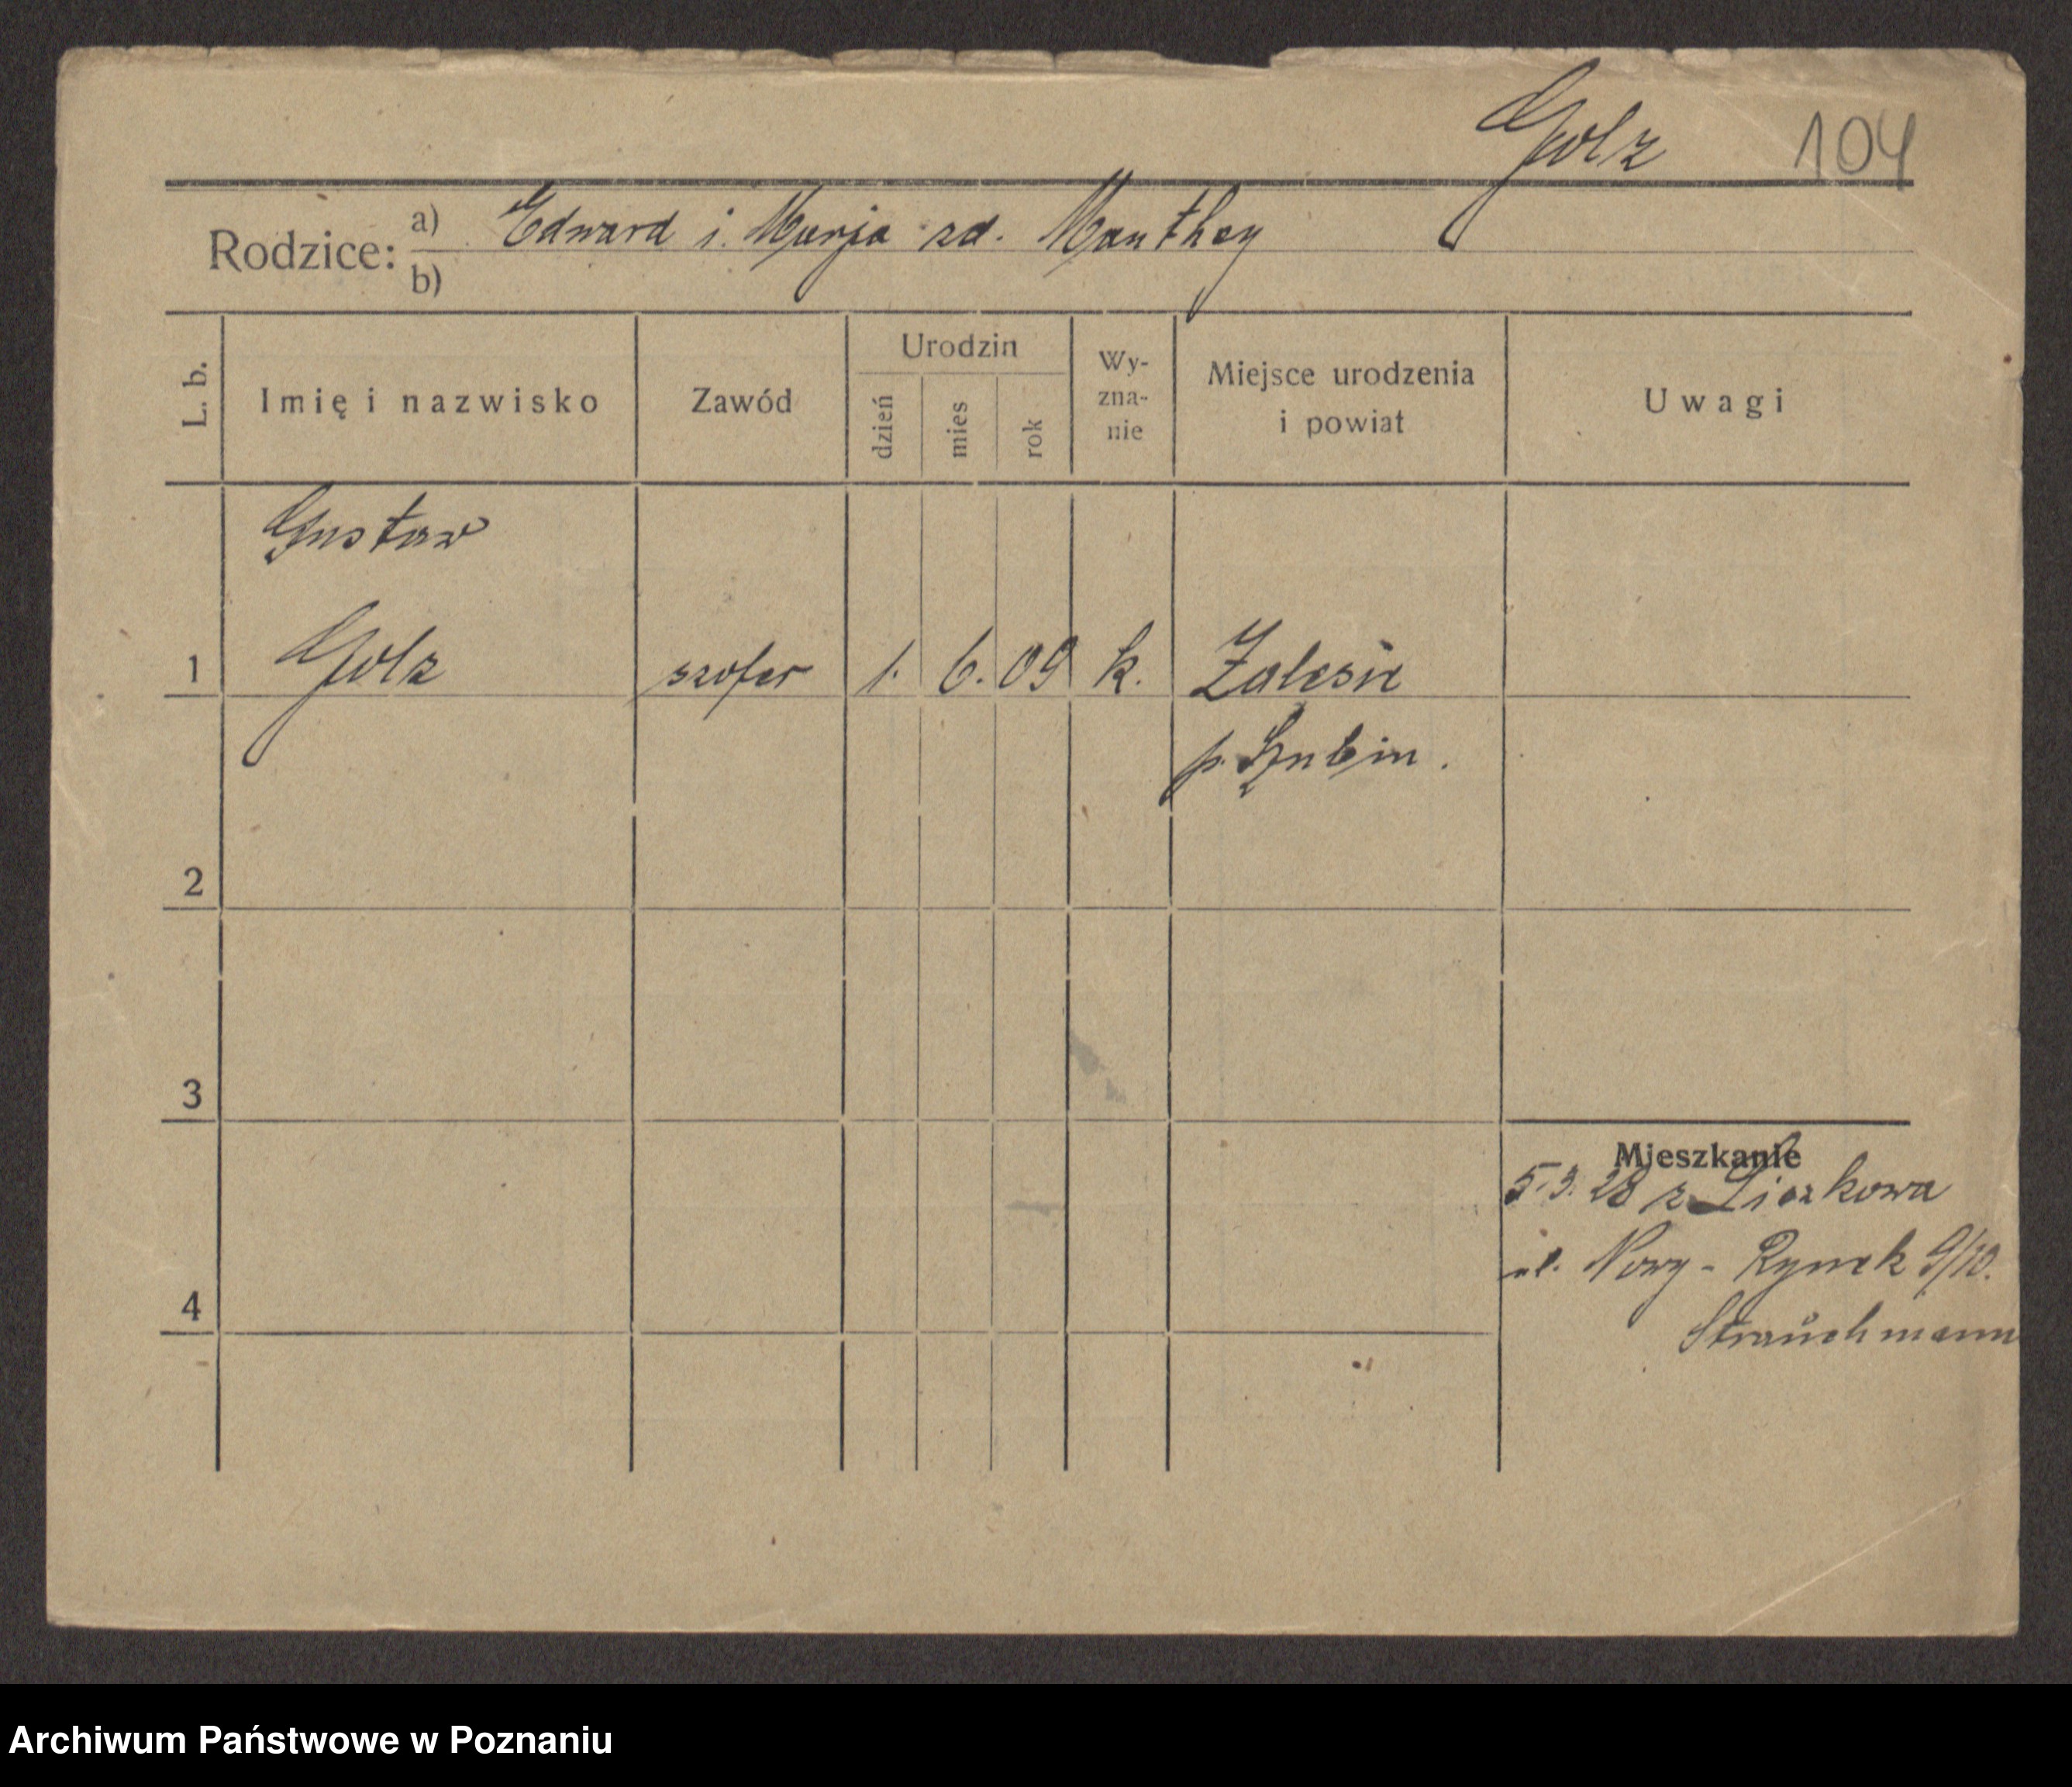 Golz 104
Rodzice: a) Edward i Marja zd. Manthey
b)
L. b. Imię i nazwisko Zawód Urodzin dzień mies rok Wy-zna-nie Miejsce urodzenia i powiat Uwagi
Gustaw
1 Golz szofer 1. 6. 09 k. Zalesie
p. Szubin.
2
3
Mieszkanie
5.3.28 z Liszkowa
ul. Nowy-Rynek 9/10.
4
Strauchmann
Archiwum Państwowe w Poznaniu